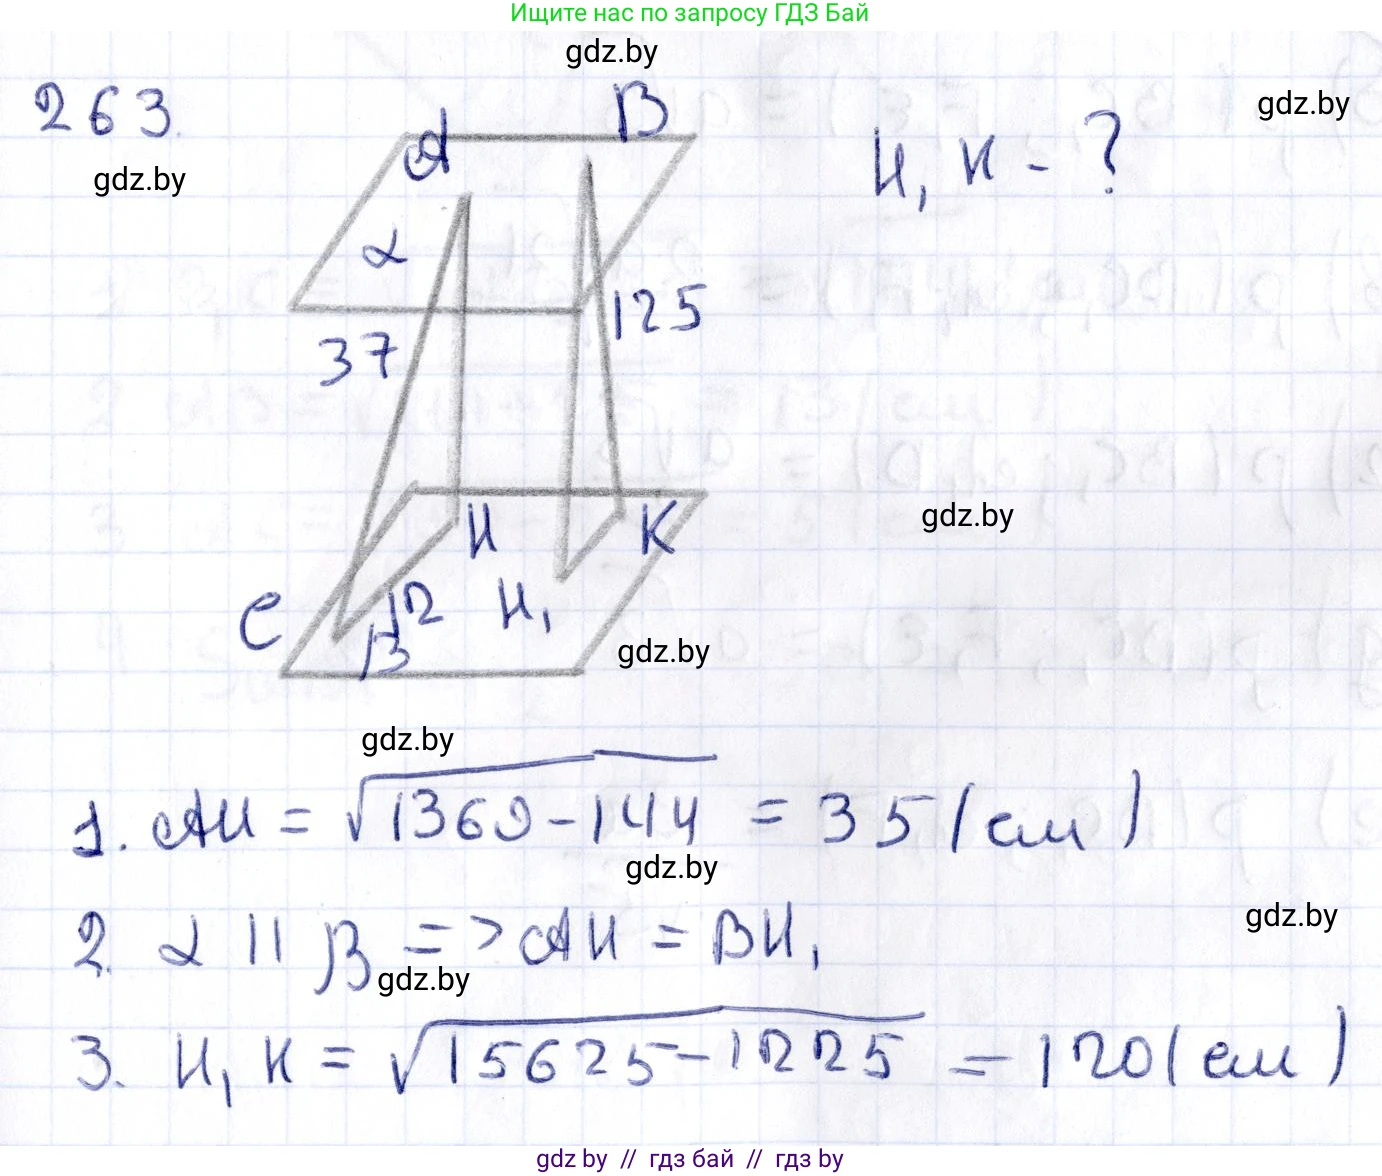 Ищите нас по запросу ГДЗ Бай
gdz.by
263.
gdz.by
gdz.by
A
B
H₁K - ?
α
37
125
gdz.by
H
K
C
12
H₁
β
gdz.by
gdz.by
1. AH = √1369-144 = 35 (см)
gdz.by
gdz.by
2. α || β => AH = BH₁
gdz.by
3. H₁K = √15625-1225 = 120 (см)
gdz.by // гдз бай // гдз by